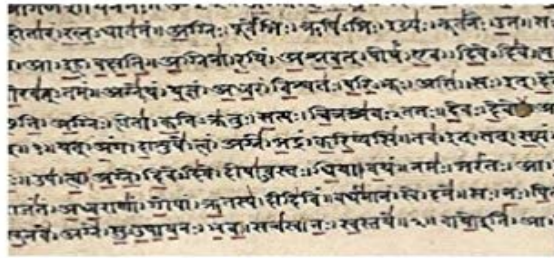 होतारं।रत्नऽधातमं॥अग्निः।पूर्वेभिः।ऋषिऽभिः।ईड्यः।नूतनैः।उत।सः
आ।इह।वक्षति॥अग्निना।रयिं।अश्नवत्।पोषं।एव।दिवेऽदिवे।
वीरवत्ऽतमं॥अग्ने।यं।यज्ञं।अध्वरं।विश्वतः।परिऽभूः।असि।सः।इत्।दे
अग्निः।होता।कविऽक्रतुः।सत्यः।चित्रश्रवःऽतमः।देवः।देवे
यत्।अंग।दाशुषे।त्वं।अग्ने।भद्रं।करिष्यसि।तव।इत्।तत्।सत्यं
उप।त्वा।अग्ने।दिवेऽदिवे।दोषाऽवस्तः।धिया।वयं॥नमः।भरंतः।आ।
राजंतं।अध्वराणां।गोपां।ऋतस्य।दीदिविं॥वर्धमानं।स्वे।दमे॥सः।नः।पि
सूनवे।अग्ने।सुऽउपायनः।भव॥सचस्व।नः।स्वस्तये॥वायो इति।आ।